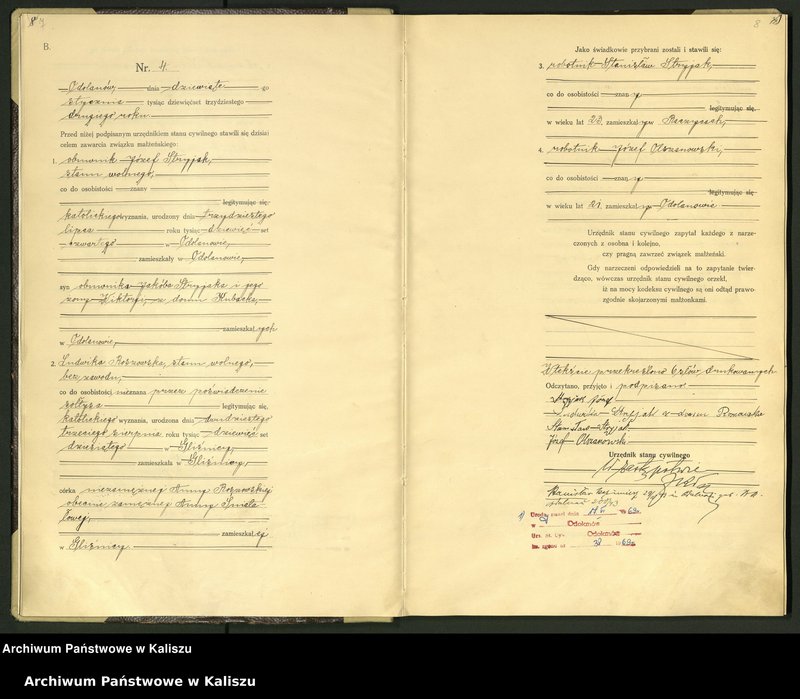 8 7
B.
Nr. 4
Odolanów, dnia dziewiąte go
stycznia tysiąc dziewięćset trzydziestego
drugiego roku.
Przed niżej podpisanym urzędnikiem stanu cywilnego stawili się dzisiaj
celem zawarcia związku małżeńskiego:
1. obuwnik Józef Stryjak,
stanu wolnego,
co do osobistości znany
legitymując się,
katolickiego wyznania, urodzony dnia trzydziestego
lipca roku tysiąc dziewięć set
czwartego w Odolanowie,
zamieszkały w Odolanowie,
syn obuwnika Jakóba Stryjaka i jego
żony Wiktorji, z domu Kubacka,
zamieszkałych
w Odolanowie,
2. Ludwika Roszowska, stanu wolnego,
bez zawodu,
co do osobistości nieznana przez poświadczenie
sołtysa legitymując się,
katolickiego wyznania, urodzona dnia dwudziestego
trzeciego sierpnia roku tysiąc dziewięć set
dziesiątego w Gliśnicy,
zamieszkała w Gliśnicy,
córka niezamężnej Anny Roszowskiej
obecnie zamężnej Anny
zamieszkałej
w Gliśnicy.
8
Jako świadkowie przybrani zostali i stawili się:
3. robotnik Stanisław Stryjak,
co do osobistości znany
legitymując się,
w wieku lat 23, zamieszkały w
4. robotnik Józef Olszanowski,
co do osobistości znany
legitymując się,
w wieku lat 21, zamieszkały w Odolanowie
Urzędnik stanu cywilnego zapytał każdego z narze-
czonych z osobna i kolejno,
czy pragną zawrzeć związek małżeński.
Gdy narzeczeni odpowiedzieli na to zapytanie twier-
dząco, wówczas urzędnik stanu cywilnego orzekł,
iż na mocy kodeksu cywilnego są oni odtąd prawo
zgodnie skojarzonymi małżonkami.
przekreślono słów drukowanych
Odczytano, przyjęto i podpisano
Stryjak Józef
Ludwika Stryjak z domu Roszowska
Stanisław Stryjak
Józef Olszanowski
Urzędnik stanu cywilnego
w zastępstwie
w
Odolanów
Urz. st. cyw. Odolanów
Archiwum Państwowe w Kaliszu
Archiwum Państwowe w Kaliszu